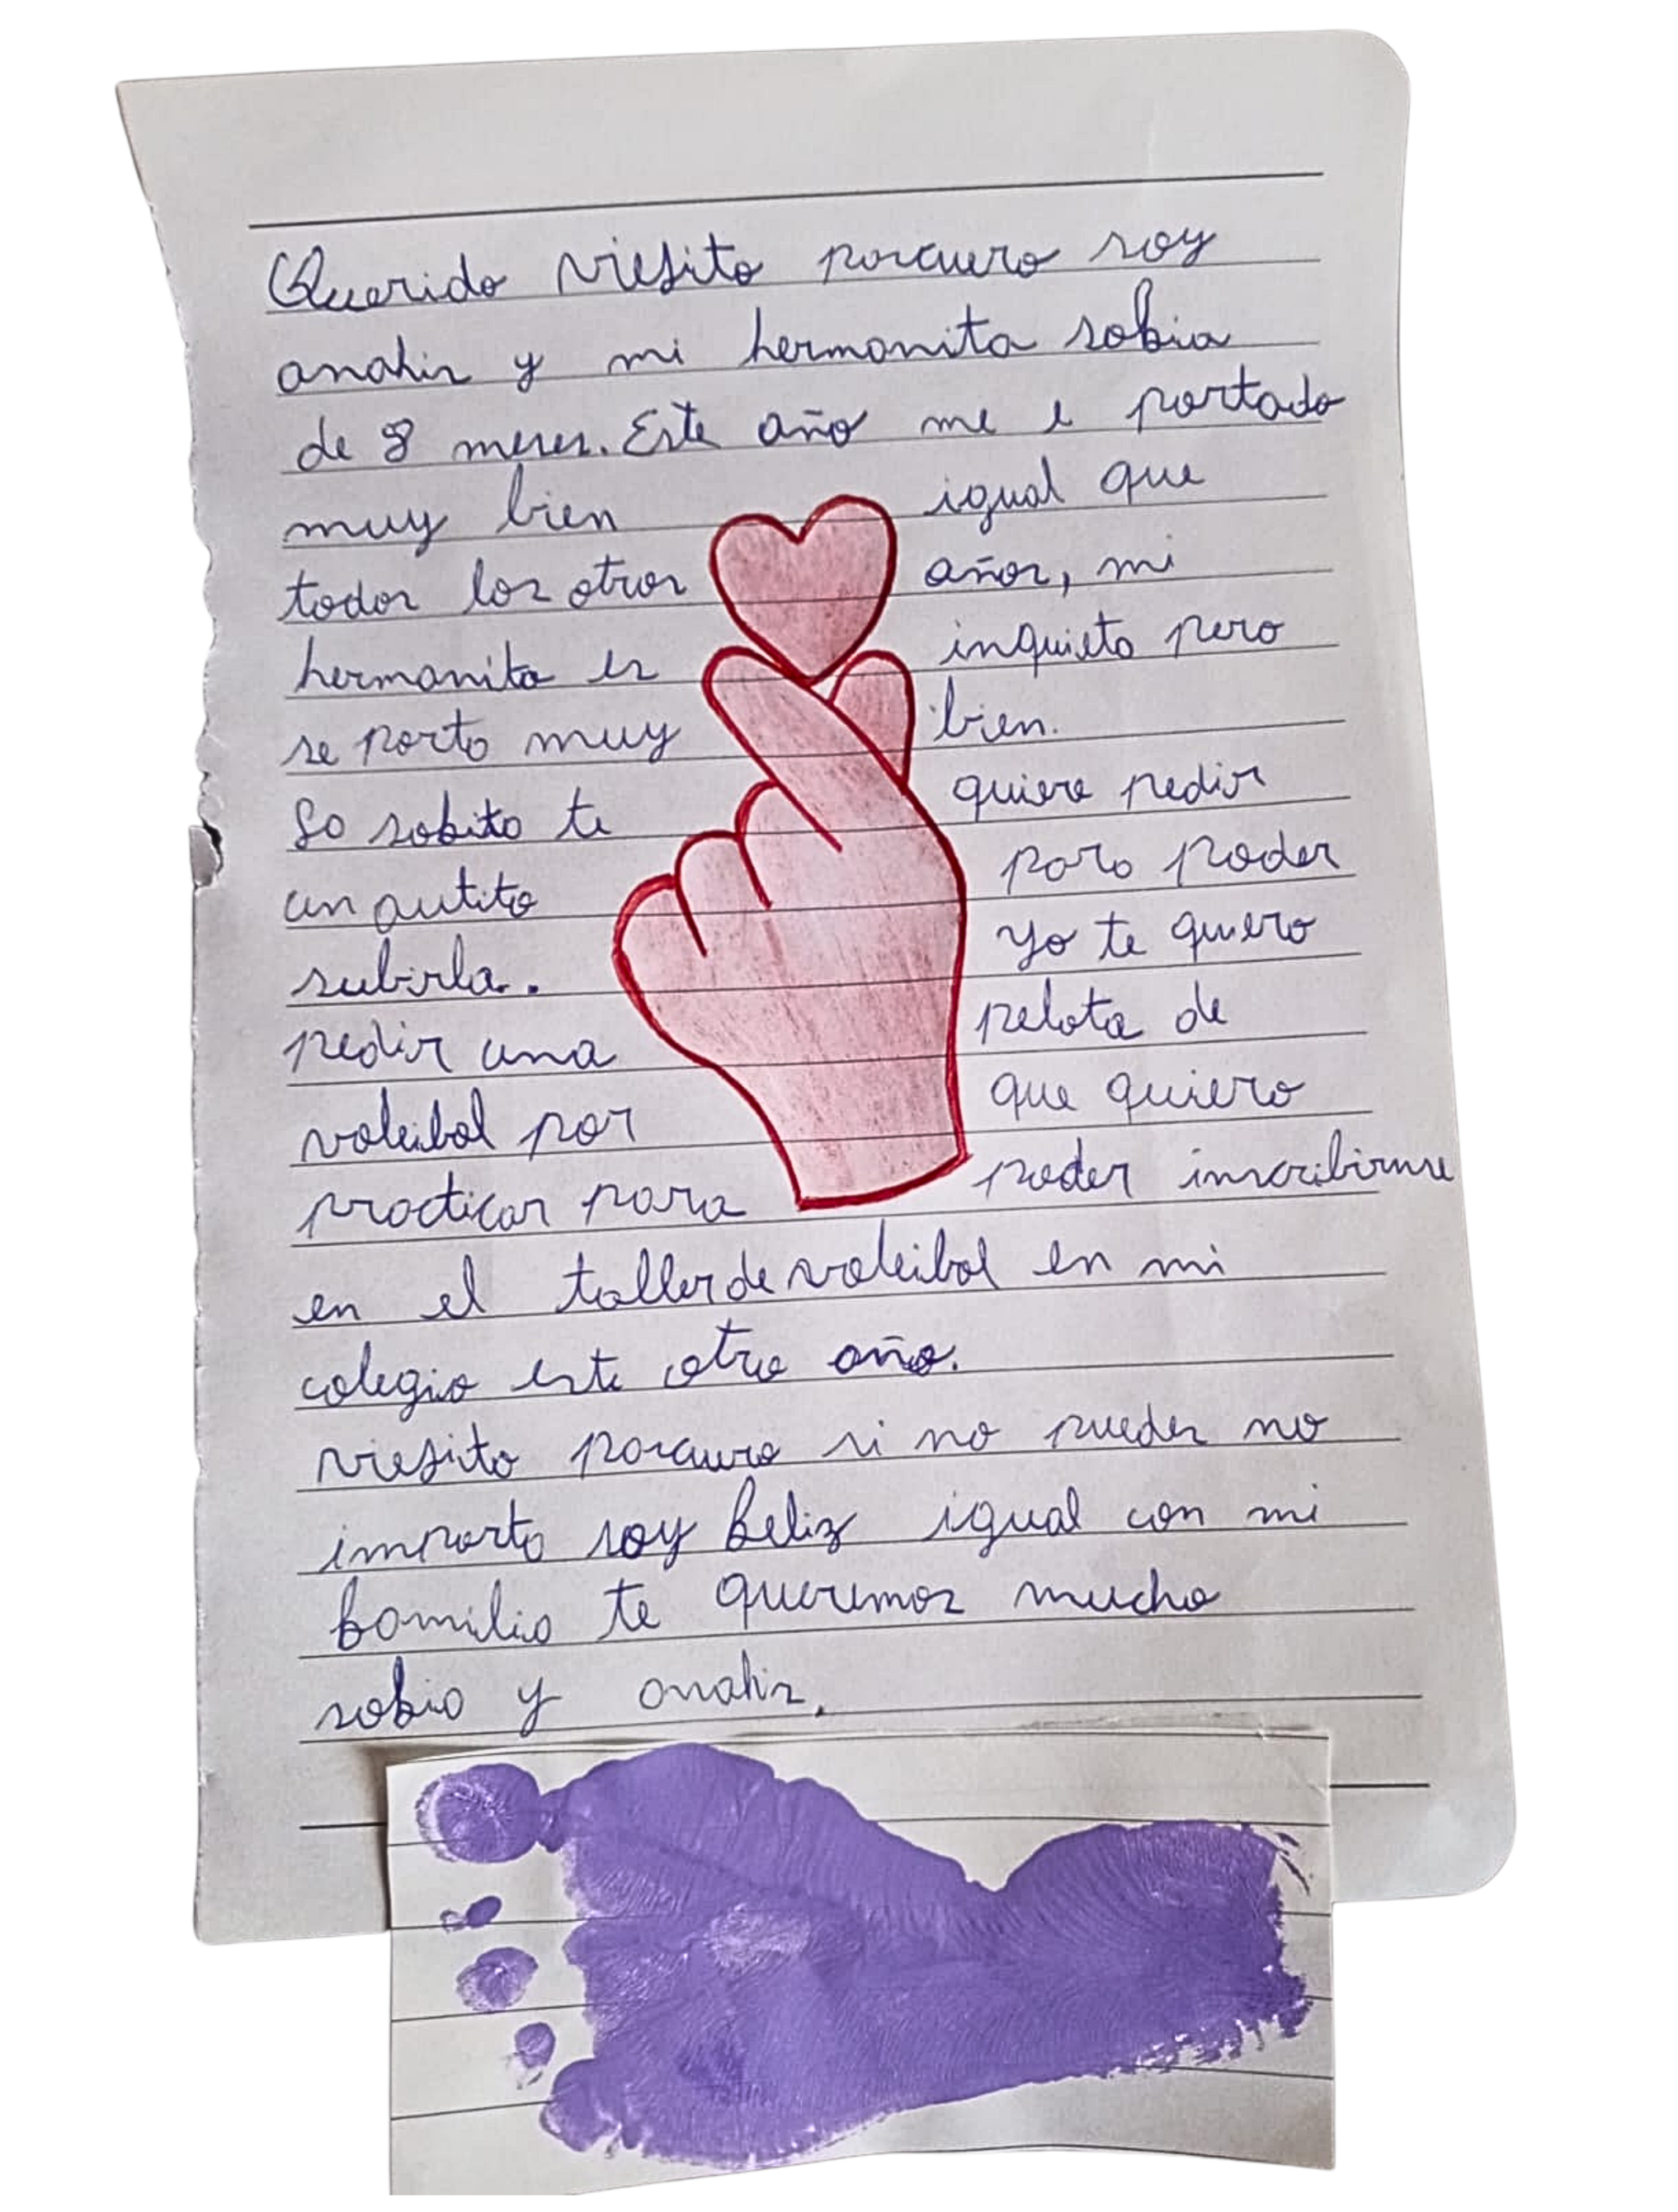 Querido viejito pascuero soy
anahis y mi hermanita sofia
de 8 meses. Este año me e portado
muy bien igual que
todos los otros años, mi
hermanita es inquieta pero
se porta muy bien.
La sofita te quiere pedir
un autito para poder
subirla.. Yo te quiero
pedir una pelota de
voleibol por que quiero
practicar para poder inscribirme
en el taller de voleibol en mi
colegio este otro año.
viejito pascuero si no puedes no
importa soy feliz igual con mi
familia te queremos mucho
sofia y anahis.